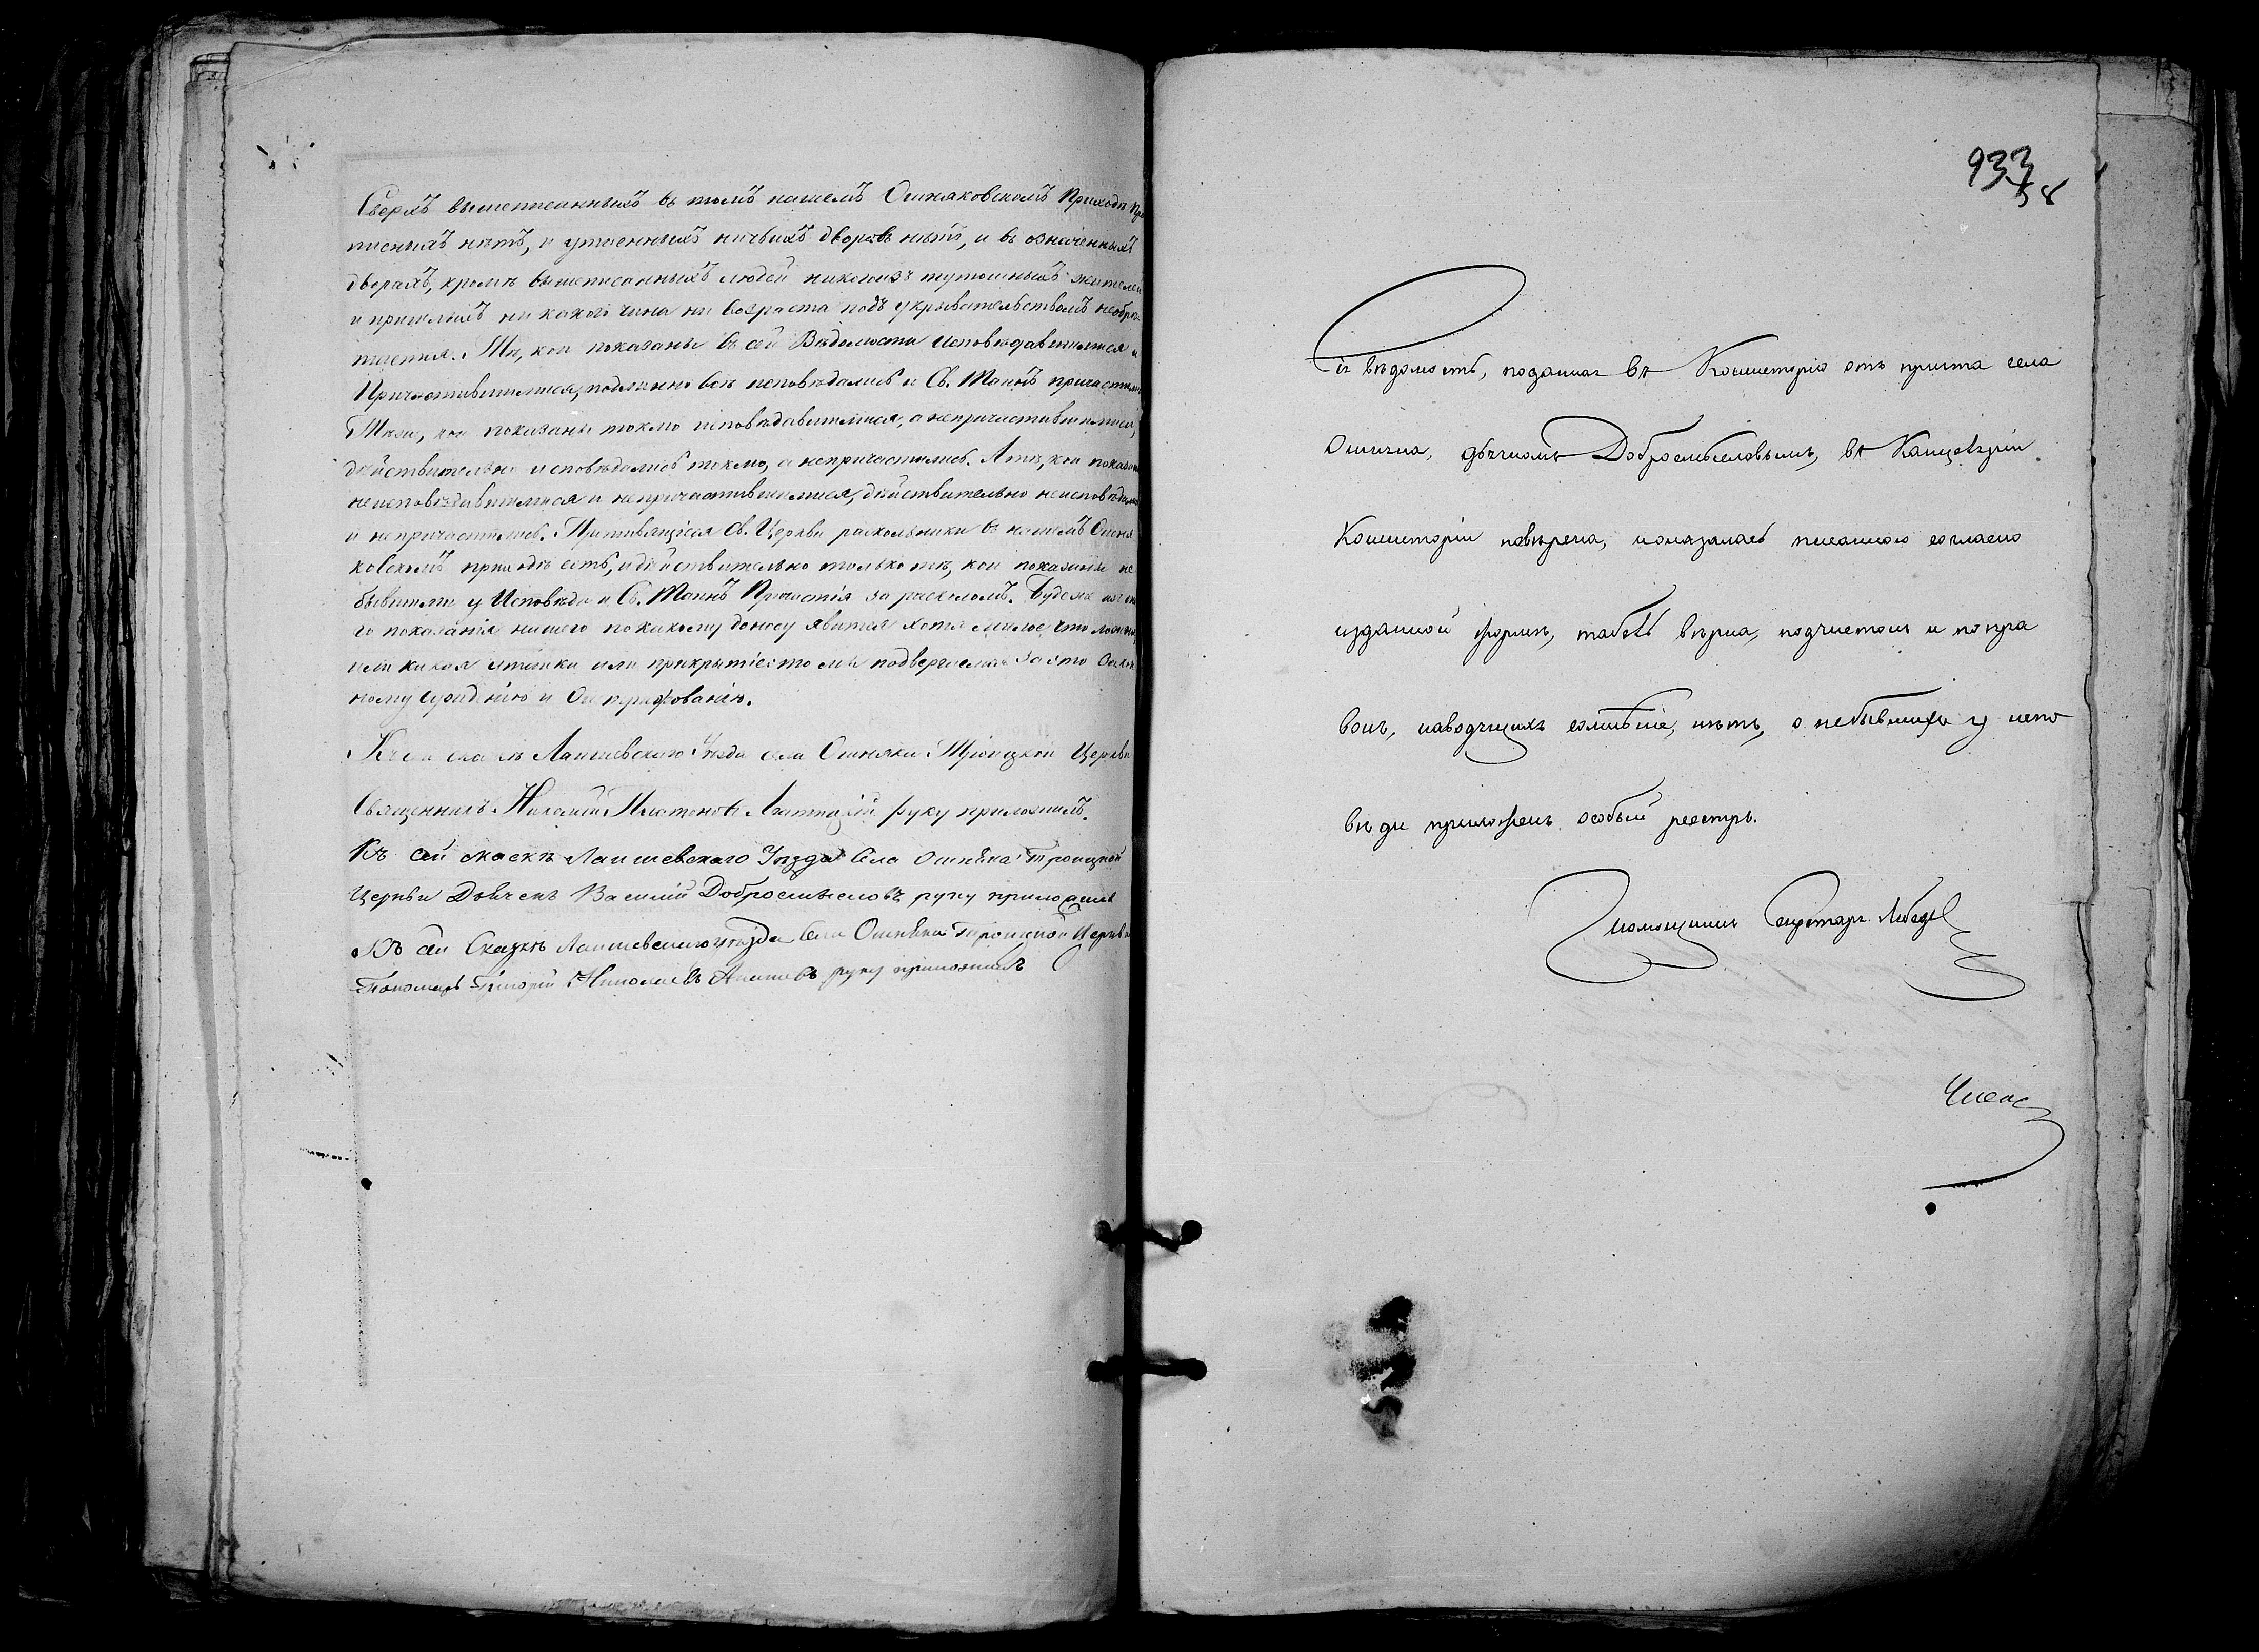 Сверхъ вышеписанныхъ въ томъ нашемъ Ошняковскомъ Приходѣ
писныхъ нѣтъ, и утаенныхъ ничьихъ дворовъ нѣтъ, и въ означенныхъ
дворахъ, кромѣ вышеписанныхъ людей никого изъ тутошныхъ жителей
и пришлыхъ ни какого чина ни возраста подъ укрывательствомъ необрѣ-
тается. Тѣ, кои показаны въ сей Вѣдомости Исповѣдавшимися и
Причастившимися, подлинно всѣ исповѣдались и Св. Таинъ причастились
Тѣже, кои показаны токмо исповѣдавшимися, а непричастившимися,
дѣйствительно исповѣдались токмо, а непричастились. А тѣ, кои показаны
неисповѣдавшимися и непричастившимися, дѣйствительно неисповѣдались
и непричастились. Противящіеся Св. Церкви раскольники въ нашемъ Ошня
ковскомъ приходѣ есть, и дѣйствительно только тѣ, кои показаны не
бывшими у Исповѣди и Св. Таинъ Причастія за расколомъ. Будеже изъ
го показанія нашего по какому доносу явится хотя малое что ложно
или какая утайка или прикрытіе то мы подвергаемся за это
ному сужденію и Оштрафованію.
Къ сей сказкѣ Лаишевскаго Уѣзда села Ошняка Троицкой Церкви
Священникъ Платоновъ руку приложилъ.
Къ сей сказкѣ Лаишевскаго Уѣзда Села Ошняка Троицкой
Церкви Дьячекъ Василій Добросмысловъ руку приложилъ
Къ сей Сказкѣ Лаишевскаго уѣзда Села Ошняка Троицкой Церкви
Пономарь Григорій Николаевъ руку приложилъ
933
58
Сія вѣдомость, поданная въ Консисторію отъ причта села
Ошняка, дьячкомъ Добросмысловымъ, въ Канцеляріи
Консисторіи повѣрена, и оказалась писанною согласно
изданной формѣ, табель вѣрна, подчистокъ и попра
вокъ, наводящихъ сомнѣніе, нѣтъ, о небывшихъ у испо
вѣди приложенъ особый реестръ.
Помощникъ Секретаря Лебедев